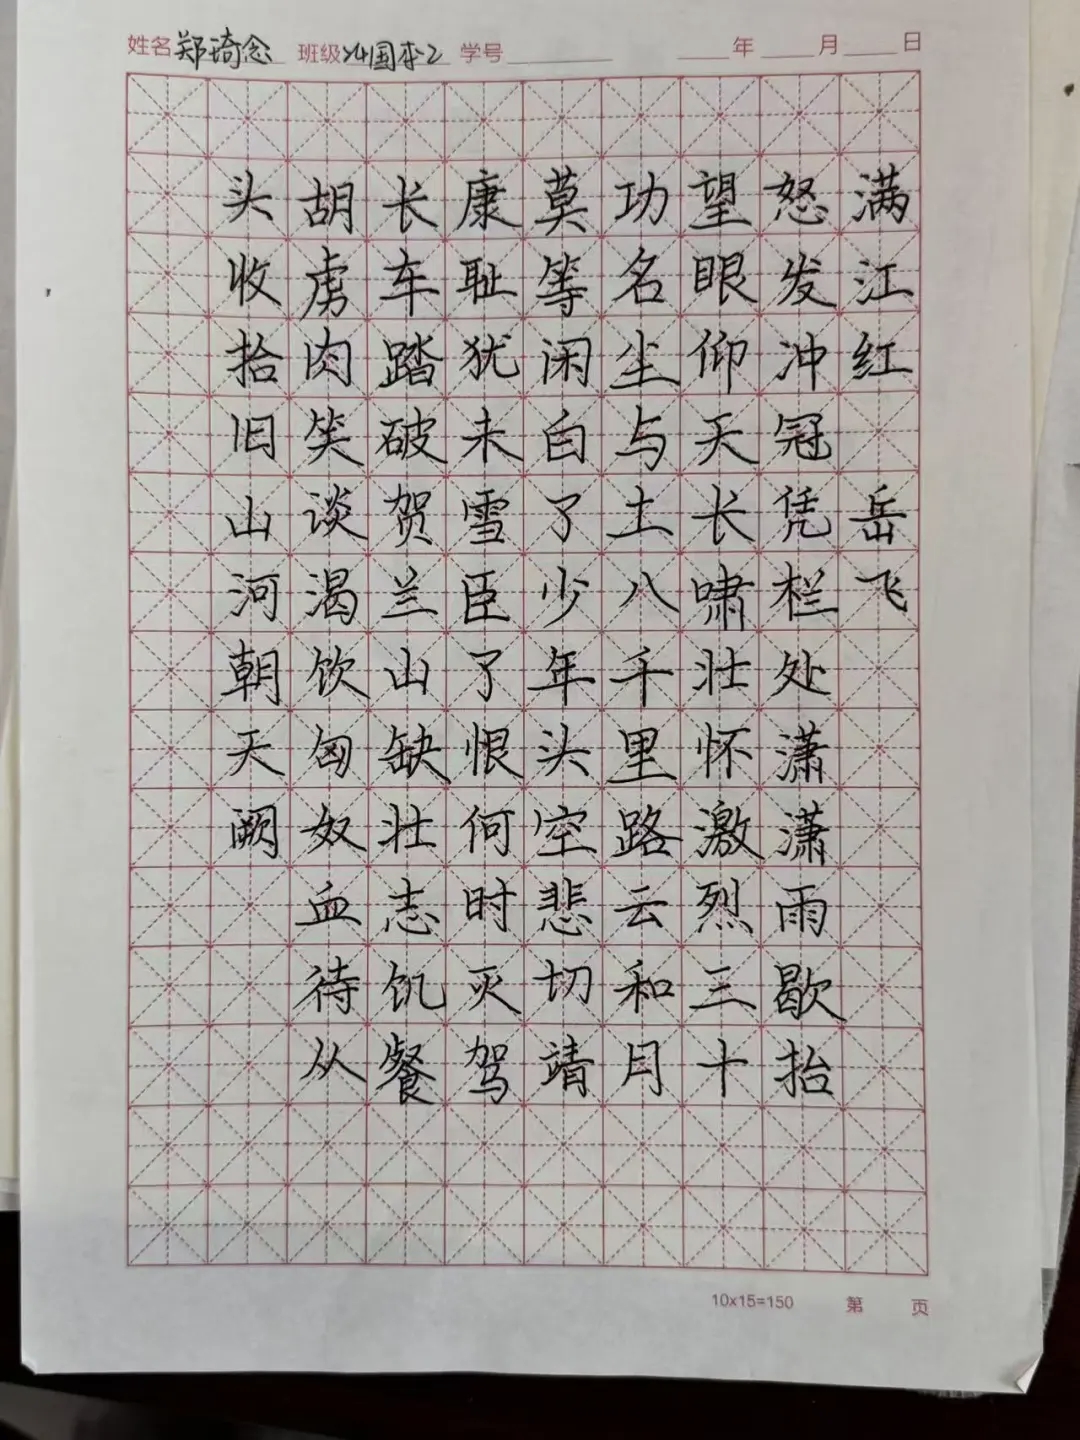 姓名 郑琦念 班级 24国本2 学号 年 月 日
满江红 岳飞
怒发冲冠凭栏处潇潇雨歇抬
望眼仰天长啸壮怀激烈三十
功名尘与土八千里路云和月
莫等闲白了少年头空悲切靖
康耻犹未雪臣了恨何时灭驾
长车踏破贺兰山缺壮志饥餐
胡虏肉笑谈渴饮匈奴血待从
头收拾旧山河朝天阙
10x15=150 第 页